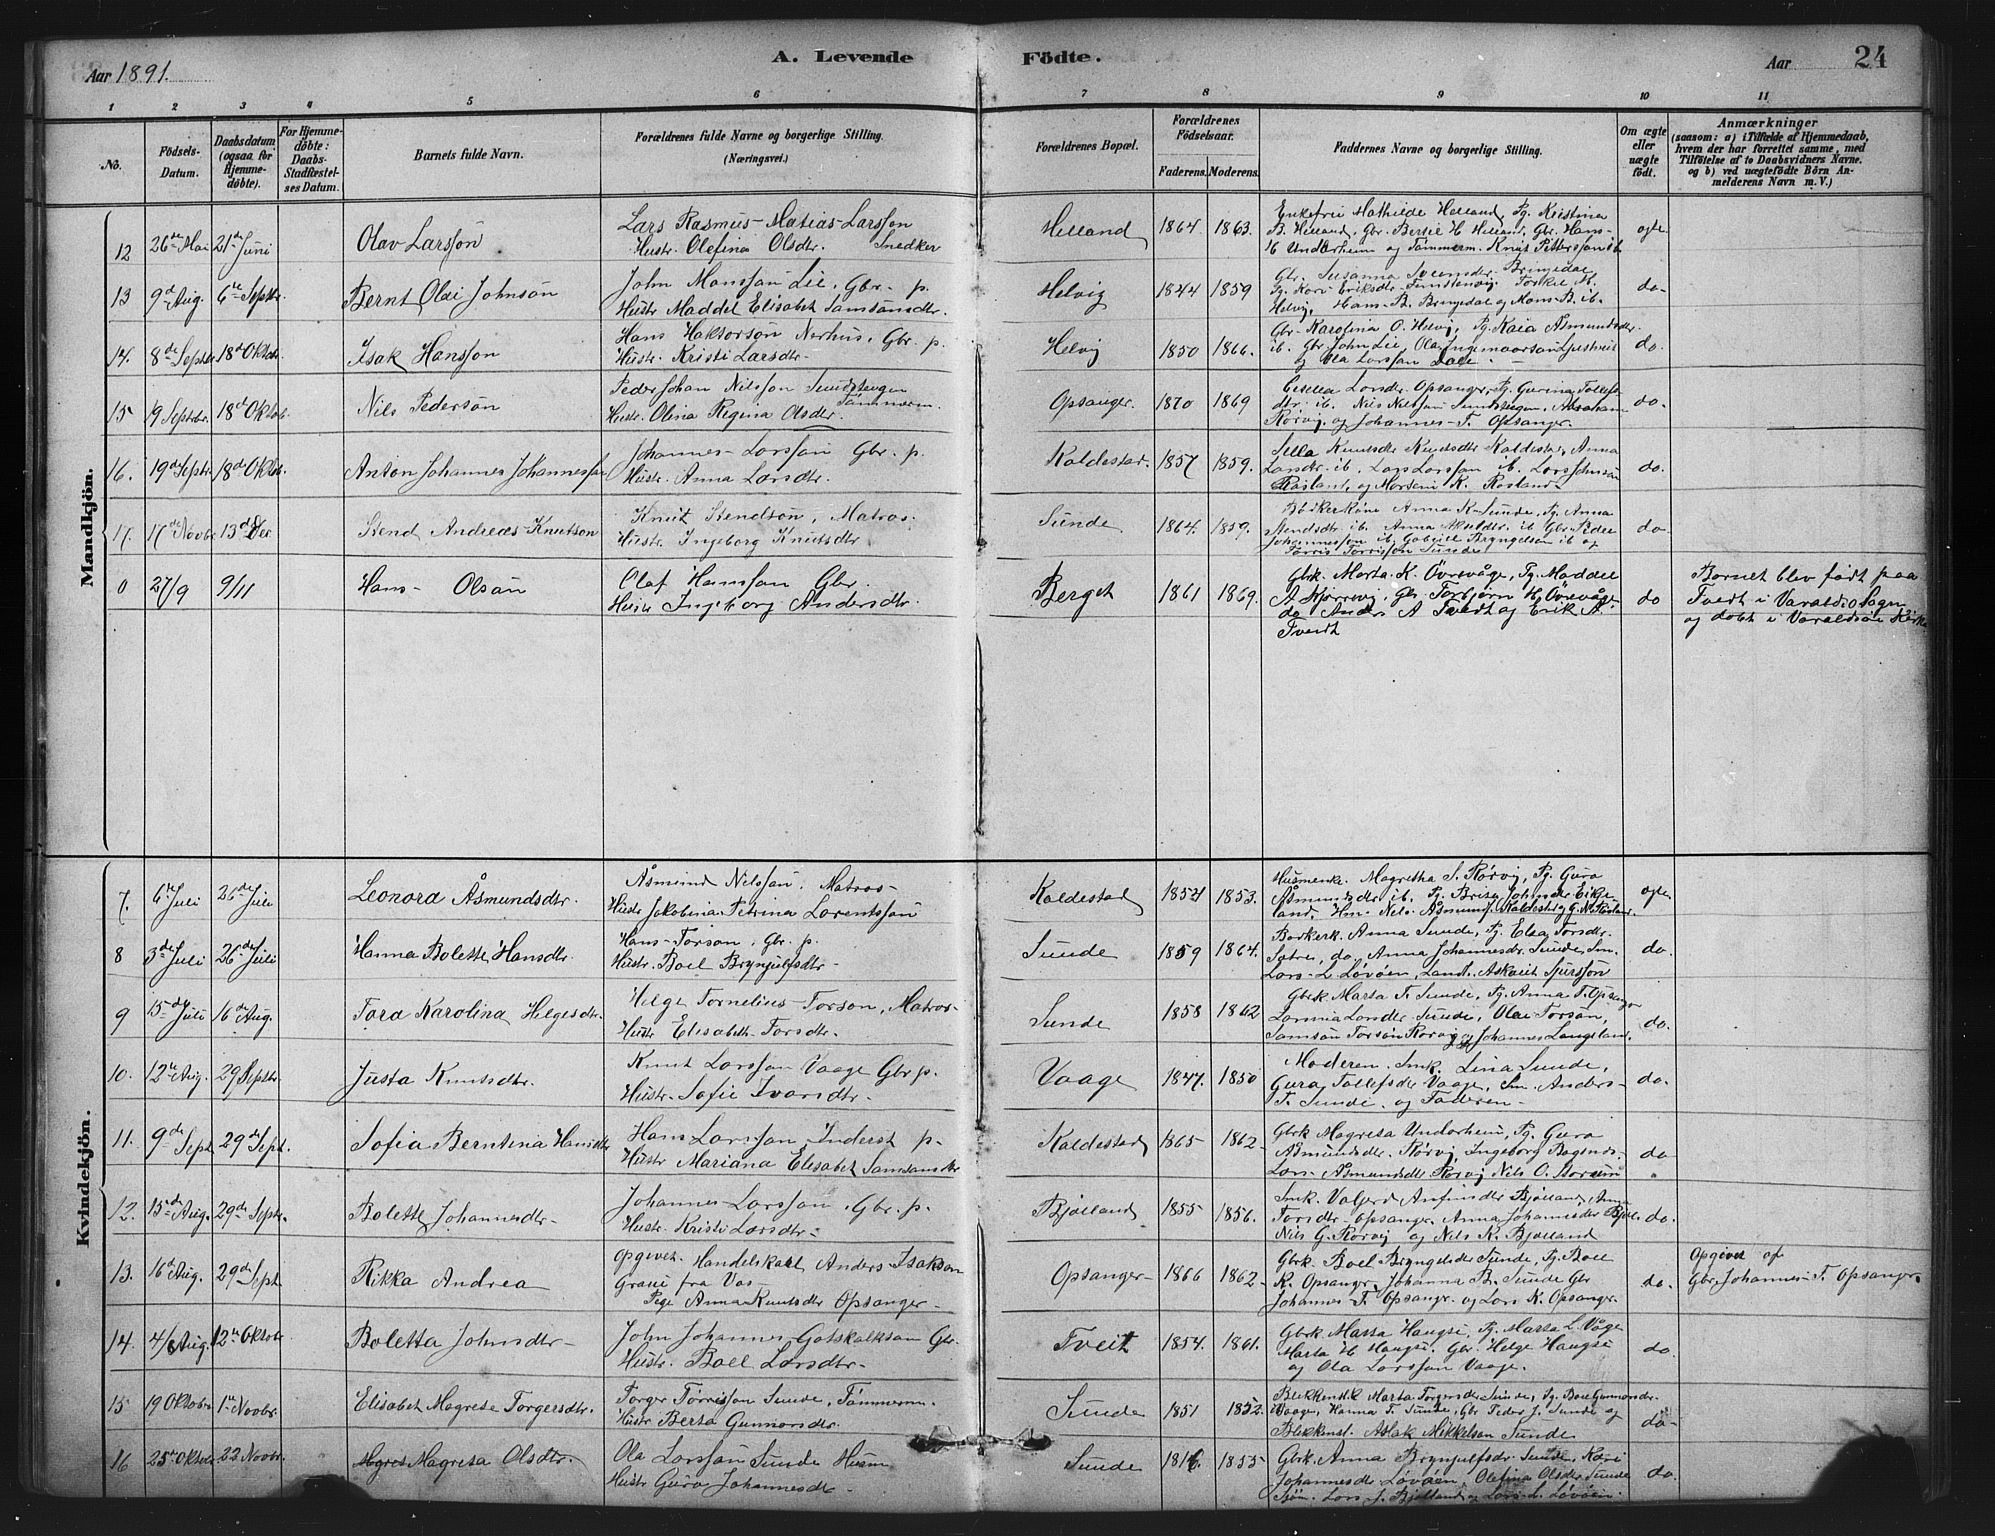 Aar 1891.
A. Levende Födte.
Aar
24
1 2 3 4 5 6 7 8 9 10 11
No.
Födsels-Datum.
Daabsdatum (ogsaa for Hjemmedöbte).
For Hjemmedöbte: Daabs-Stadfæstelses Datum.
Barnets fulde Navn.
Forældrenes fulde Navne og borgerlige Stilling. (Næringsvei.)
Forældrenes Bopæl.
Forældrenes Födselsaar.
Faderens. Moderens.
Faddernes Navne og borgerlige Stilling.
Om ægte eller uægte födt.
Anmærkninger
(saasom: a) i Tilfælde af Hjemmedaab, hvem der har forrettet samme, med Tilföielse af to Daabsvidners Navne. og b) ved uægtefödte Börn Anmelderens Navn m. V.)
Mandkjön.
12 26de Mai 21de Juni Olav Larssön
Lars Rasmus Matias Larssön
Hustr. Olefina Olsdtr. Snedker
Helland 1864 1863.
Enkefru Mathilde Helland, Pg. Kristina
B. Helland, Gbr. Bertel H Helland, Gbr. Hans
og Tømmerm. Knut
ogte.
13 9de Aug. 6te Septbr. Bernt Olai Johnsön
John Monssön Lie, Gbr. p.
Hustr Maddel Elisabet Samsonsdtr.
Helvig 1844 1859
Gbr. Susanna Bringedal
Pg. Kari Eriksdtr
Helvig, Hans B. Bringedal og Mons B. ib.
do.
14. 8de Septbr 18de Oktbr. Isak Hanssön
Hans Haktorsön Nerhus, Gbr. p.
Hustr. Kristi Larsdtr.
Helvig 1850 1866.
Gbr. Karolina O. Helvig, Pg. Kaia Åsmundsdtr.
ib. Gbr. John Lie, Ola
og Ola Larssön Dale
do.
15 19 Septbr. 18de Oktbr. Nils Pedersön
Peder Johan Nilssön Sundsteigen
Tömmerm.
Hustr. Olina Regina Olsdtr.
Opsanger. 1870 1869
Opsanger, Pg. Gurina Tollefs
dtr. ib. Nils Nilssön Sundsteigen, Abraham
Rörvig og Johannes T. Opsanger.
do.
16. 19de Septbr 18de Oktbr. Anton Johannes Johannessön
Johannes Larssön Gbr. p.
Hustr. Anna Larsdtr.
Kaldestad. 1857 1859.
Sella Knutsdtr Kaldestad, Anna
Larsdtr. ib. Lars Larssön ib. Lars Johnsön
Røsland, og Morten K. Røsland.
do.
17. 17de Novbr 13de Dec. Stend Andreas Knutson
Knut Stendsön, Matros.
Hustr. Ingeborg Knutsdtr
Sunde 1864. 1859.
Bödkerkone Anna K. Sunde, Pg. Anna
Stendsdtr ib. Anna ib Gbr. Peder
Johannessön ib. Gabriel Bryngelsen ib og
Torris Torrissön Sunde.
do
0 27/9 9/11 Hans Olsön
Olaf Hanssön Gbr.
Hustr Ingeborg Andersdtr.
Berget 1861 1869.
Gbrk. Marta K. Övrevåge, Pg. Maddel
A Skjærrevig, Gbr. Torbjørn H. Övrevåge
do Anders A Tvedt og Erik A.
Tvedt
do
Barnet blev født paa
Tvedt i Varaldsö Sogn
og døbt i Varaldsön Kirke
Kvindekjön.
7. 6te Juli 26de Juli Leonora Åsmundsdtr.
Åsmund Nilssön. Matros
Hustr Jakobina Petrina Lorentssön
Kaldestad 1854 1853.
Husmenke. Magretha S. Rørvig, Pg. Gura
Åsmundsdtr ib. Pg. Brita Johnsdtr Eike
land, Hm. Nils Åsmunds. Kaldestad og G. N. Røsland.
ogte
8 3de Juli 26de Juli Hanna Bolette Hansdtr.
Hans Torsön, Gbr. p.
Hustr. Boel Brynjulfsdtr
Sunde 1859 1864.
Anna Sunde, Pg. Elsa Torsdtr.
Sætre, do. Anna Johannesdtr Sunde, Sm.
Lars L. Løvøen, Landh. Sjurssön
do.
9 15de Juli 16de Aug. Tora Karolina Helgesdtr.
Helge Tornelius Torson, Matros
Hustr Elisabeth Torsdtr.
Sunde 1858 1862
Gbrk. Marta T. Sunde, Pg. Anna T. Opsanger
Larsdtr Sunde, Olai Torsön,
Samson Torson Rorvig og Johannes Langeland.
do.
10. 12te Aug. 29 Septbr Justa Knutsdtr.
Knut Larssön Vaage Gbr p.
Hustr. Sofie Ivarsdtr.
Vaage 1847. 1850
Moderen. Smk. Lina Sunde,
Gura Tollefsdtr Vaage, Sm. Anders
T. Sunde. og Faderen
do.
11. 9de Sept. 29de Sept. Sofia Berntina Hansdtr
Hans Larssön Inderst p.
Hustr Mariana Elisabet Samsonsdtr
Kaldestad 1865 1862
Gbrk Magreta Undarheim, Pg. Gura
Åsmundsdtr Rørvig, Ingeborg
Lars Åsmundsdtr Rørvig Nils O.
do
12. 15de Aug. 29de Septbr. Bolette Johannesdtr
Johannes Larssön, Gbr. p.
Hustr Kristi Larsdtr
Bjølland 1855 1856.
Smk. Valgerd Anfinsdtr Bjølland, Anna
Torsdtr Opsanger. Anna Johannesdtr Bjøl.
Nils G. Rorvig og Nils K. Bjølland
do.
13. 16de Aug. 29de Sept Rikka Andrea
Opgivet. Handelskarl Anders Isakson
Graue fra Vos
Pige Anna Knutsdtr Opsanger
Opsanger 1866 1862
Gbrk. Boel Bryngelsdtr Sunde, Pg. Boel
K. Opsanger, Johanna B. Sunde Gbr
Johannes T. Opsanger og Lars K. Opsanger.
do.
Opgivet af
Gbr. Johannes T. Opsanger.
14. 4/ Aug. 12te Oktobr Boletta Johnsdtr
John Johannes Gotskalkson Gbr.
Hustr. Boel Larsdtr
Tveit 1854. 1861.
Gbrk. Marta Haugse, Pg. Marta L. Våge
Marta H Haugse. Gbr. Helge Haugse
og Ola Larssön Vaage.
do.
15 19 Oktobr 1te Novbr. Elisabet Magrete Torgersdtr.
Torger Torrissön Sunde, Tömmerm.
Hustr Berta Gunnarsdtr.
Sunde 1851 1852.
Blikkenslk Marta Torgersdtr Sunde, Pg. Boel Gunnarsdtr.
Vaage, Hanna T. Sunde, Gbr Peder J. Sunde og
Blikkensl. Aslak Mikkelson Sunde
do
16 25de Oktobr 22 Novbr. Magreta Olsdtr.
Ola Larssön Sunde Husm
Hustr Guro Johannesdtr
Sunde 1855
Gbrk. Anna Brynjulfsdtr Sunde, Kari
Johannesdtr Løvøen, Olefina Olsdtr Sunde
Lars J. Bjølland og Lars L. Løvøen.
do.